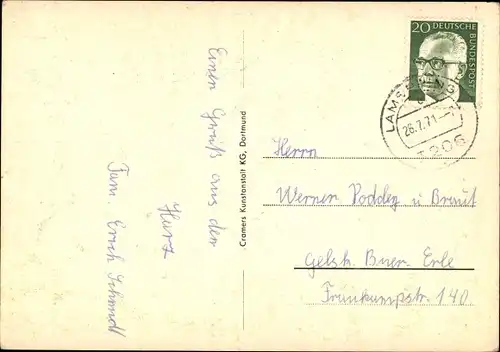 Einen Gruß aus den
Harz
Fam. Erich Schmidt
Cramers Kunstanstalt KG, Dortmund
20 DEUTSCHE
BUNDESPOST
26.7.71
Herrn
Werner u Braut
Gelsk. Buer. Erle
Frankampstr. 140